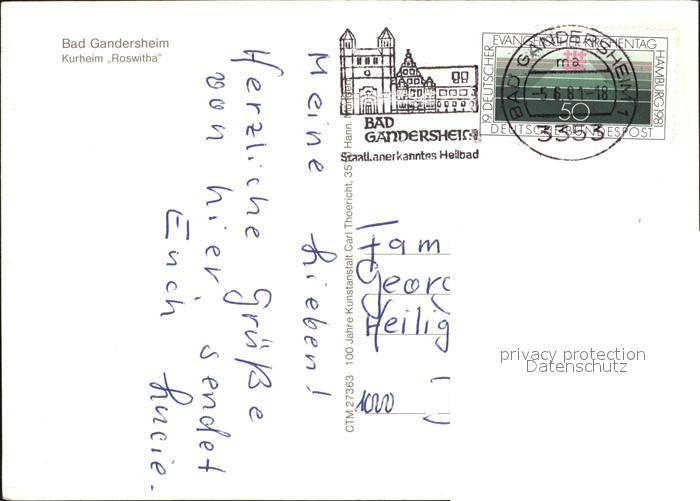 Bad Gandersheim
Kurheim „Roswitha"
Meine Lieben!
Herzliche Grüße
von hier, sendet
Euch Lucie.
CTM 27363 100 Jahre Kunstanstalt Carl Thoericht, 35 Hann.
BAD
GANDERSHEIM
Staatl. anerkanntes Heilbad
19. DEUTSCHER EVANGELISCHER KIRCHENTAG HAMBURG 1981
50
DEUTSCHE BUNDESPOST
BAD GANDERSHEIM 1
ma
-5.6.81-18
3353
Fam
Georg
Heilig
1000
privacy protection
Datenschutz